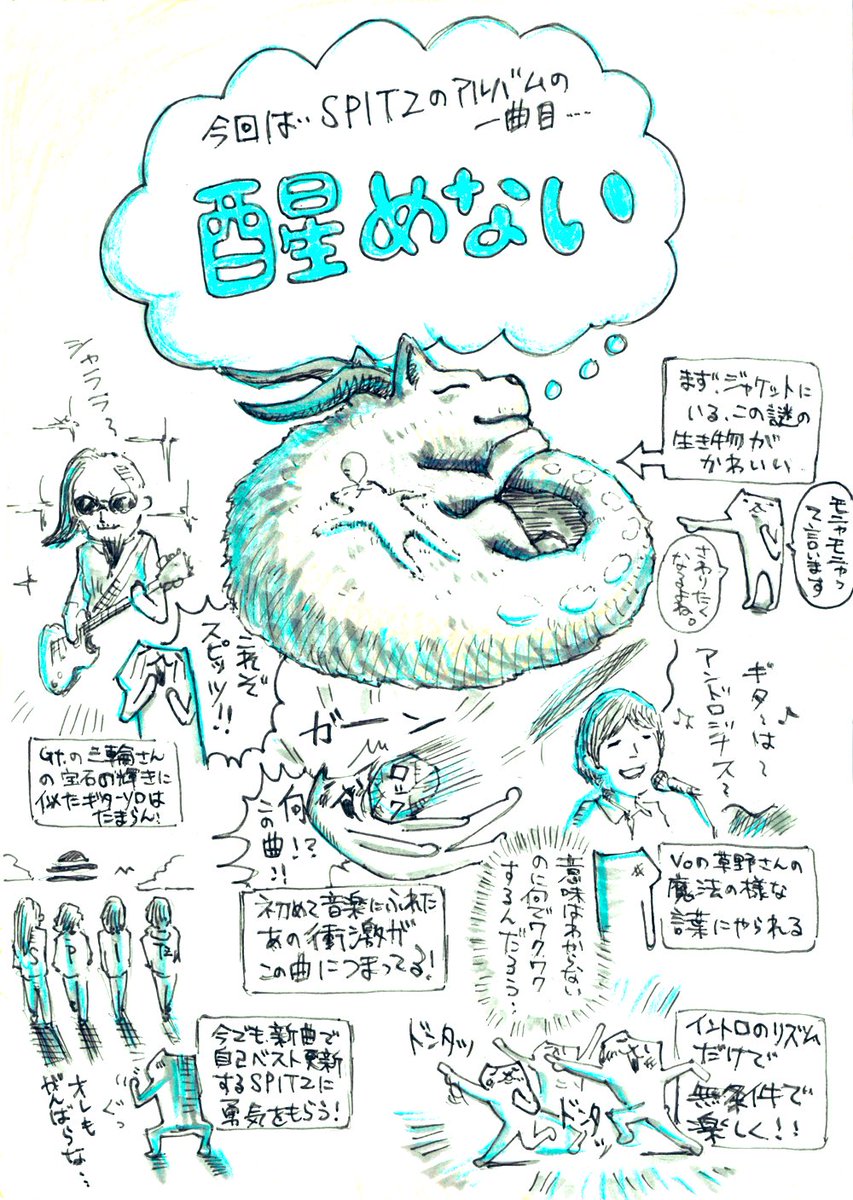 今回は… SPITZのアルバムの
一曲目……
醒めない
シャララ〜
まず、ジャケットに
いる、この謎の
生き物が
かわいい
モニャモニャッ
て言います
さわりたく
なるよね。
これぞ
スピッツ!!
Gt.の三輪さん
の宝石の輝きに
似たギターソロは
たまらん!
ガーン
ロック
何!?
この曲!!
ギターは〜
アンドロジナス〜
初めて音楽にふれた
あの衝激が
この曲につまってる!
意味はわからない
のに何でワクワク
するんだろう…
Voの草野さんの
魔法の様な
言葉にやられる
S P I TZ
今でも、新曲で
自己ベスト更新
するSPITZに
勇気をもらう!
ぐっ
オレも
がんばらな…
ドンタッ
ドンタッ
イントロのリズム
だけで
無条件で
楽しく!!